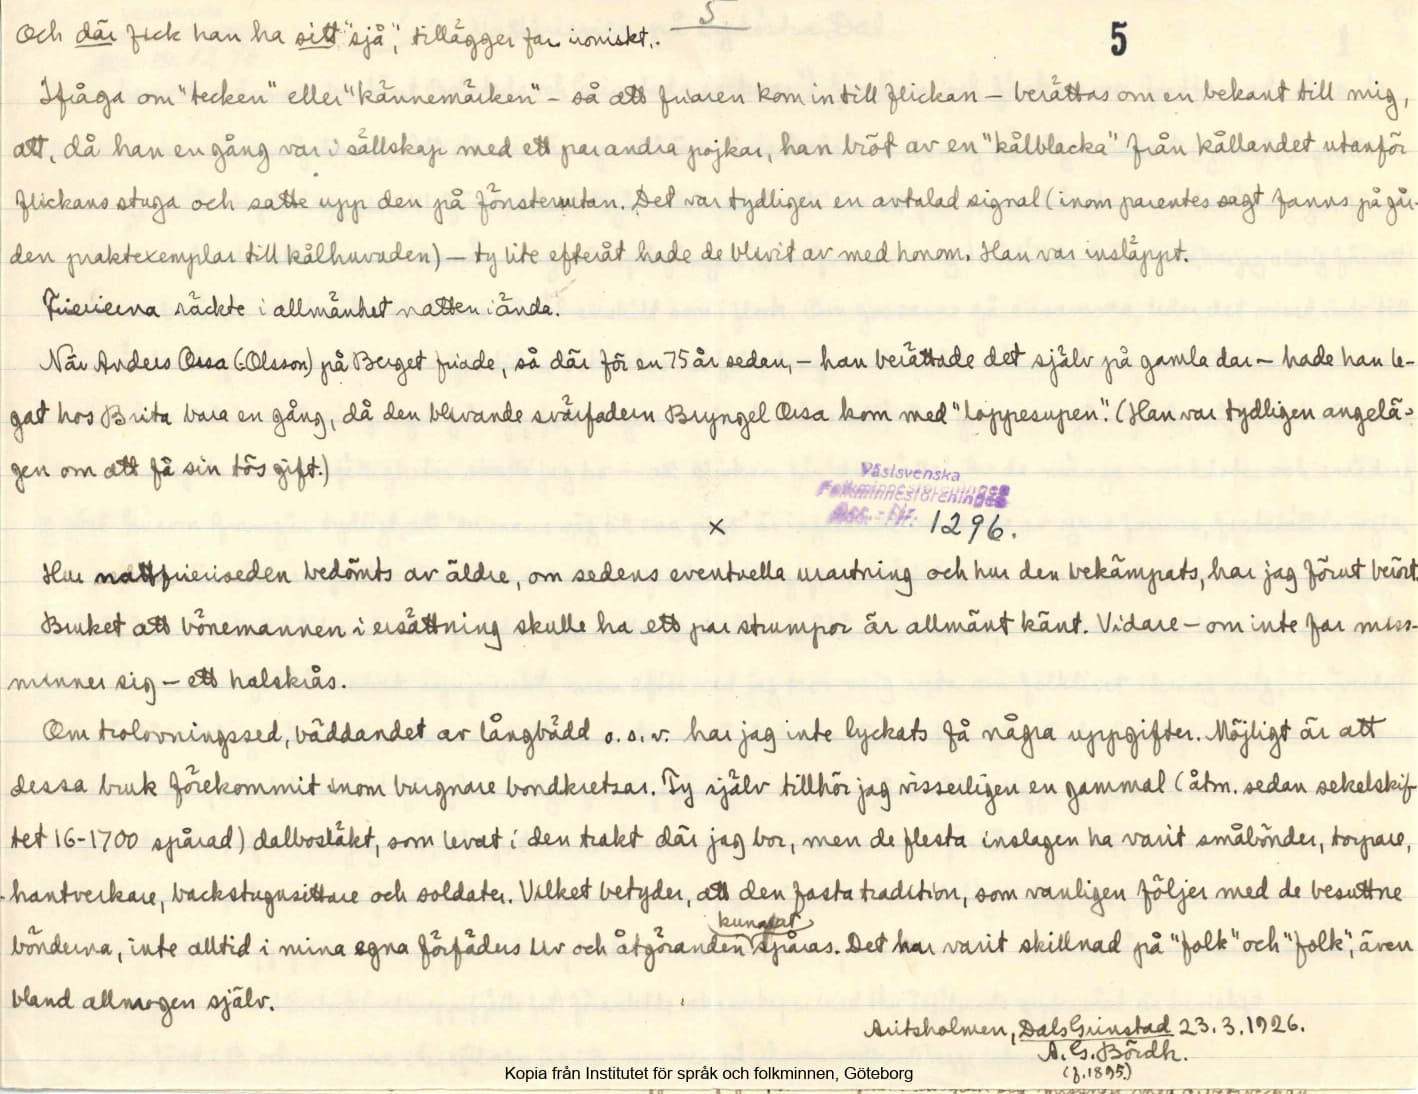 5
5
Och där fick han ha sitt "sjå", tillägger far ironiskt.
Ifråga om "tecken" eller "kännemärken" - så att friaren kom in till flickan - berättas om en bekant till mig,
att, då han en gång var i sällskap med ett par andra pojkar, han bröt av en "kålblacka" från kållandet utanför
flickans stuga och satte upp den på fönsterrutan. Det var tydligen en avtalad signal (inom parentes sagt fanns på går-
den praktexemplar till kålhuvuden) - ty lite efteråt hade de blivit av med honom. Han var insläppt.
Frierierna räckte i allmänhet natten i ända.
När Anders Ossa (=Olsson) på Berget friade, så där för en 75 år sedan, - han berättade det själv på gamla dar - hade han le-
gat hos Brita bara en gång, då den blivande svärfadern Bryngel Orsa kom med "loppesupen". (Han var tydligen angelä-
gen om att få sin tös gift.)
Västsvenska
Folkminnesföreningen
Acc.-Nr. 1296.
x
Hur nattfrieriseden bedömts av äldre, om sedens eventuella urartning och hur den bekämpats, har jag förut berört.
Bruket att bönemannen i ersättning skulle ha ett par strumpor är allmänt känt. Vidare - om inte far miss-
minner sig - ett halskrås.
Om trolovningssed, bäddandet av långbädd o.s.v. har jag inte lyckats få några uppgifter. Möjligt är att
dessa bruk förekommit inom burgnare bondkretsar. Ty själv tillhör jag visserligen en gammal (åtm. sedan sekelskif-
tet 16-1700 spårad) dalbosläkt, som levat i den trakt där jag bor, men de flesta inslagen ha varit småbönder, torpare,
hantverkare, backstugusittare och soldater. Vilket betyder, att den fasta tradition, som vanligen följer med de besuttne
kunnat
bönderna, inte alltid i mina egna förfäders liv och åtgöranden spåras. Det har varit skillnad på "folk" och "folk", även
bland allmogen själv.
Aritsholmen, Dals Grinstad 23.3.1926.
A. G. Bördh.
(f. 1895)
Kopia från Institutet för språk och folkminnen, Göteborg